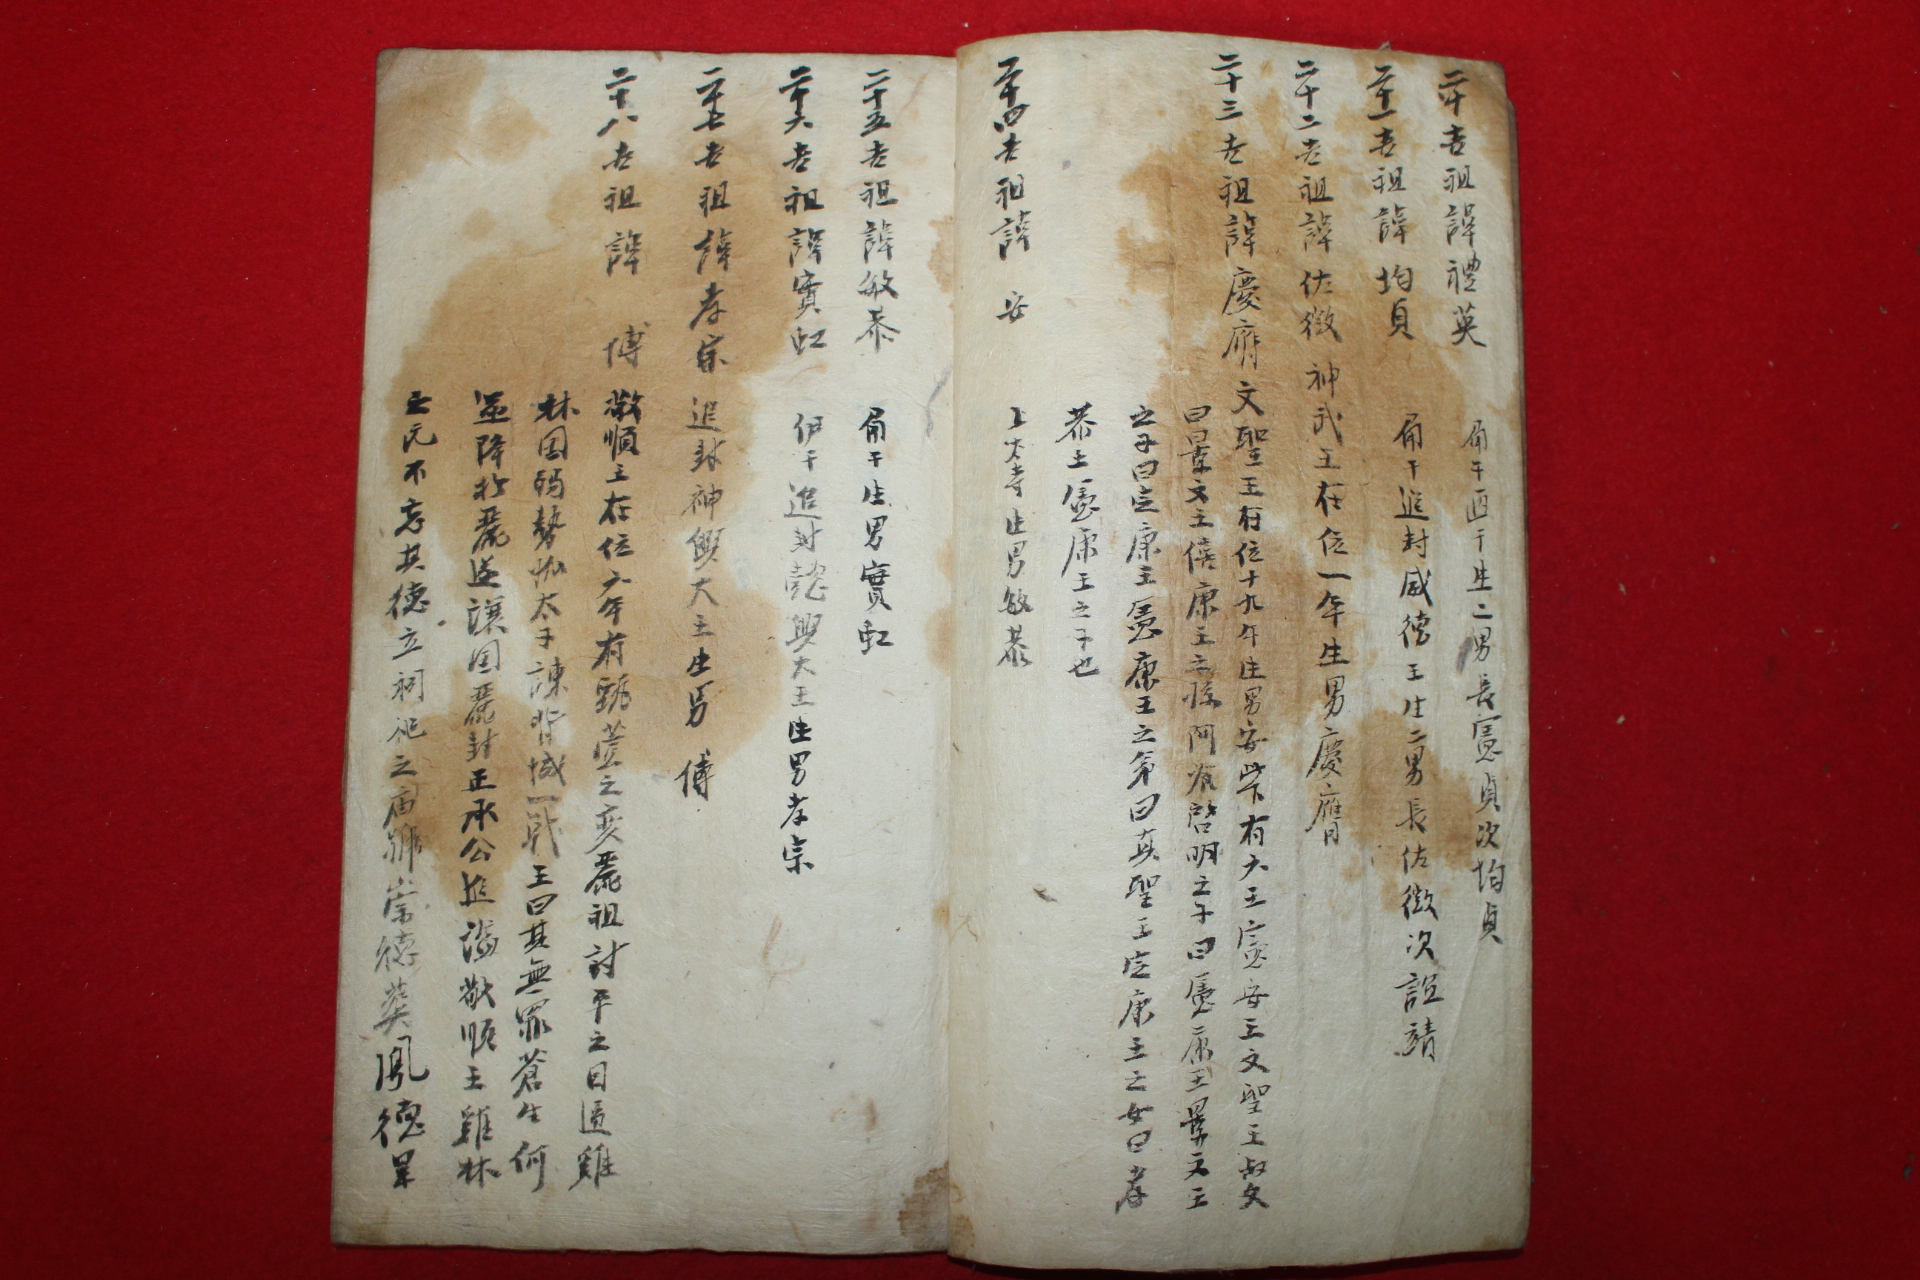 二十世祖諱禮英 角干匝干生二男長憲貞次均貞
二十一世祖諱均貞 角干追封成德王生二男長佐徵次誼靖
二十二世祖諱佐徵 神武王在位一年生男慶膺
二十三世祖諱慶膺 文聖王在位十九年生男安此下有大王憲安王文聖王叔父
曰景文王僖康王之孫阿飡啓明之子曰憲康王景文王
之子曰定康王憲康王之弟曰眞聖王定康王之女曰孝
恭王憲康王之子也
二十四世祖諱 安 上大等生男敏恭
二十五世祖諱敏恭 角干生男實虹
二十六世祖諱實虹 伊干追封懿興大王生男孝宗
二十七世祖諱孝宗 追封神興大王生男 傅
二十八世祖諱 傅 敬順王在位六年有甄萱之変麗祖討平之日逼雞
林国弱勢 太子諫背城一戰王曰其無罪蒼生何
並降於麗遂讓国麗封正承公追諡敬順王雞林
之元不忘其德立祠祀之庙號崇德葬鳳德里